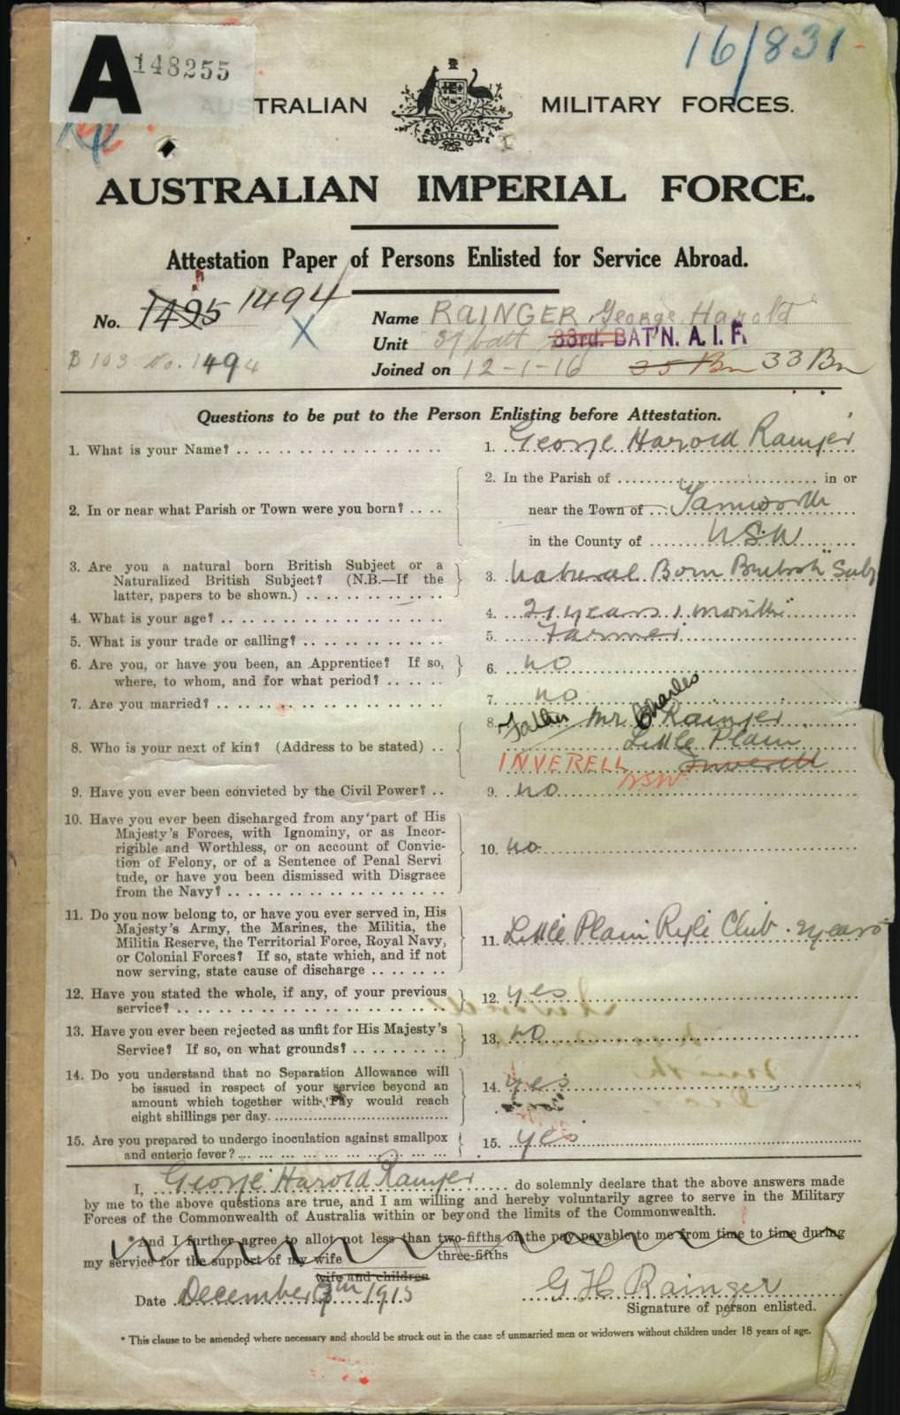 A 148255
16/831
TRALIAN MILITARY FORCES.
AUSTRALIAN IMPERIAL FORCE.
Attestation Paper of Persons Enlisted for Service Abroad.
No. 1495 1494 X
Name RAINGER George Harold
Unit 37 batt 33rd. BAT'N. A.I.F.
B 103 No. 1494
Joined on 12-1-16 35 Bn 33 Bn
Questions to be put to the Person Enlisting before Attestation.
1. What is your Name? 1. George Harold Rainger
2. In the Parish of in or
2. In or near what Parish or Town were you born? near the Town of Tamworth
in the County of NSW
3. Are you a natural born British Subject or a
Naturalized British Subject? (N.B.—If the 3. Natural Born British Subj
latter, papers to be shown.)
4. What is your age? 4. 21 years 1 month
5. What is your trade or calling? 5. Farmer
6. Are you, or have you been, an Apprentice? If so, 6. no
where, to whom, and for what period?
7. Are you married? 7. no
8. Father Mr Charles Rainger
8. Who is your next of kin? (Address to be stated) Little Plain
INVERELL NSW Inverell
9. Have you ever been convicted by the Civil Power? 9. no
10. Have you ever been discharged from any part of His
Majesty's Forces, with Ignominy, or as Incor-
rigible and Worthless, or on account of Convic-
tion of Felony, or of a Sentence of Penal Servi 10. no
tude, or have you been dismissed with Disgrace
from the Navy?
11. Do you now belong to, or have you ever served in, His
Majesty's Army, the Marines, the Militia, the
Militia Reserve, the Territorial Force, Royal Navy, 11. Little Plain Rifle Club. 2 years
or Colonial Forces? If so, state which, and if not
now serving, state cause of discharge
12. Have you stated the whole, if any, of your previous 12. yes
service?
13. Have you ever been rejected as unfit for His Majesty's 13. no
Service? If so, on what grounds?
14. Do you understand that no Separation Allowance will
be issued in respect of your service beyond an 14. yes
amount which together with Pay would reach
eight shillings per day.
15. Are you prepared to undergo inoculation against smallpox 15. yes
and enteric fever?
I, George Harold Rainger do solemnly declare that the above answers made
by me to the above questions are true, and I am willing and hereby voluntarily agree to serve in the Military
Forces of the Commonwealth of Australia within or beyond the limits of the Commonwealth.
*And I further agree to allot not less than two-fifths of the pay payable to me from time to time during
my service for the support of my wife three-fifths
wife and children
Date December 9th 1915 G H Rainger
Signature of person enlisted.
* This clause to be amended where necessary and should be struck out in the case of unmarried men or widowers without children under 18 years of age.